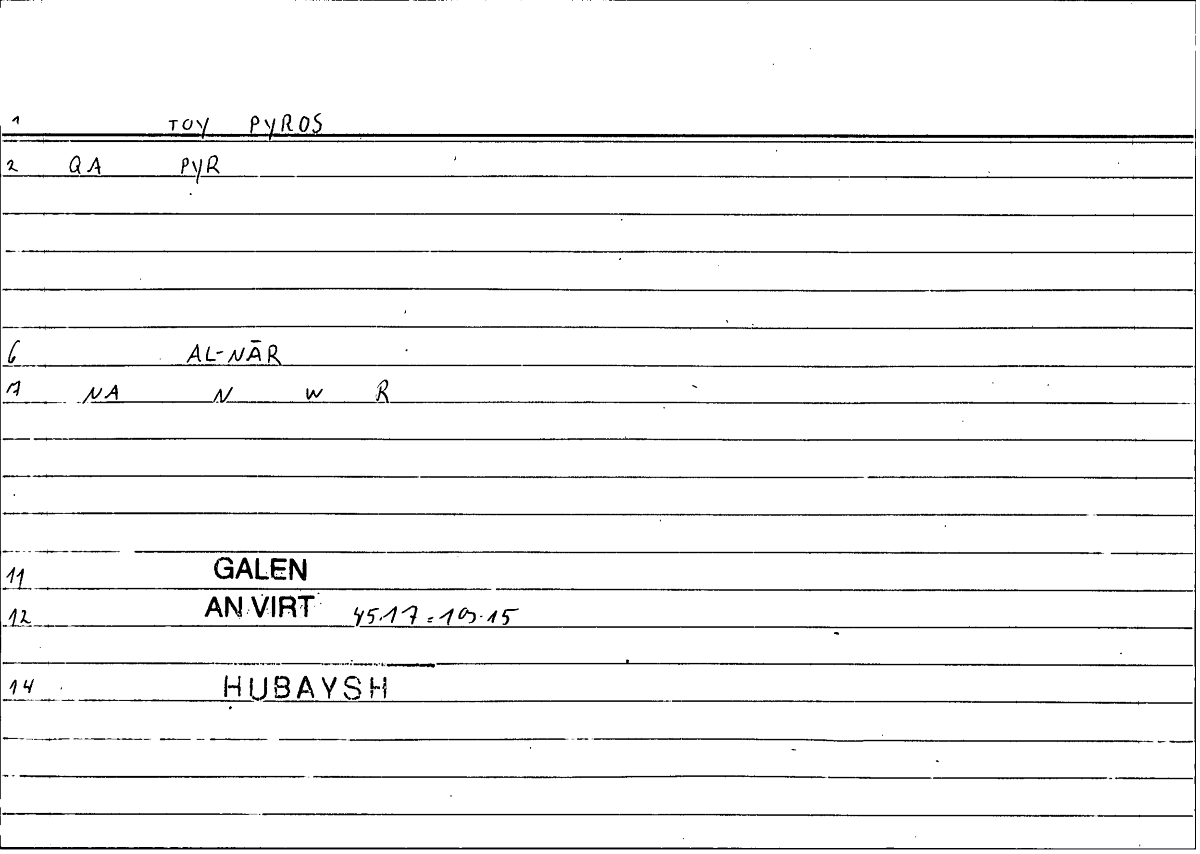 1 TOY PYROS
2 QA PYR
6 AL-NĀR
7 NA N W R
11 GALEN
12 AN VIRT 45.17 = 109.15
14 HUBAYSH